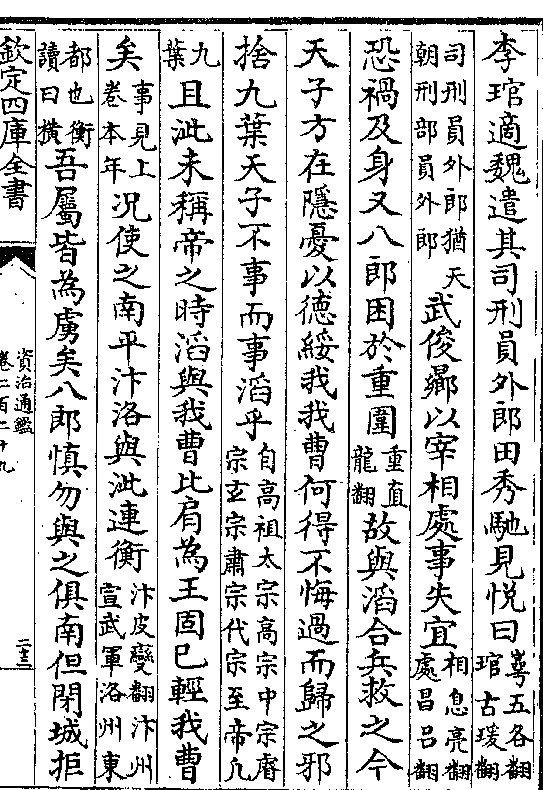 李琯適魏遣其司刑員外郎田秀馳見悅曰蕚五各翻琯古瑗翻
司刑員外郎猶天朝刑部員外郎武俊鄉以宰相處事失宜相息亮翻處昌呂翻
恐禍及身又八郎困於重圍重直龍翻故與滔合兵救之今
天子方在隱憂以德綏我我曹何得不悔過而歸之邪
捨九葉天子不事而事滔乎自高祖太宗高宗中宗睿宗玄宗肅宗代宗至帝凡
九葉且泚未稱帝之時滔與我曹比肩為王固已輕我曹
矣事見上卷本年況使之南平汴洛與泚連衡汴皮變翻汴州宣武軍洛州東
都也衡讀曰橫吾屬皆為虜矣八郎慎勿與之俱南但閉城拒
欽定四庫全書
資治通鑑
卷二百二十九
二十三